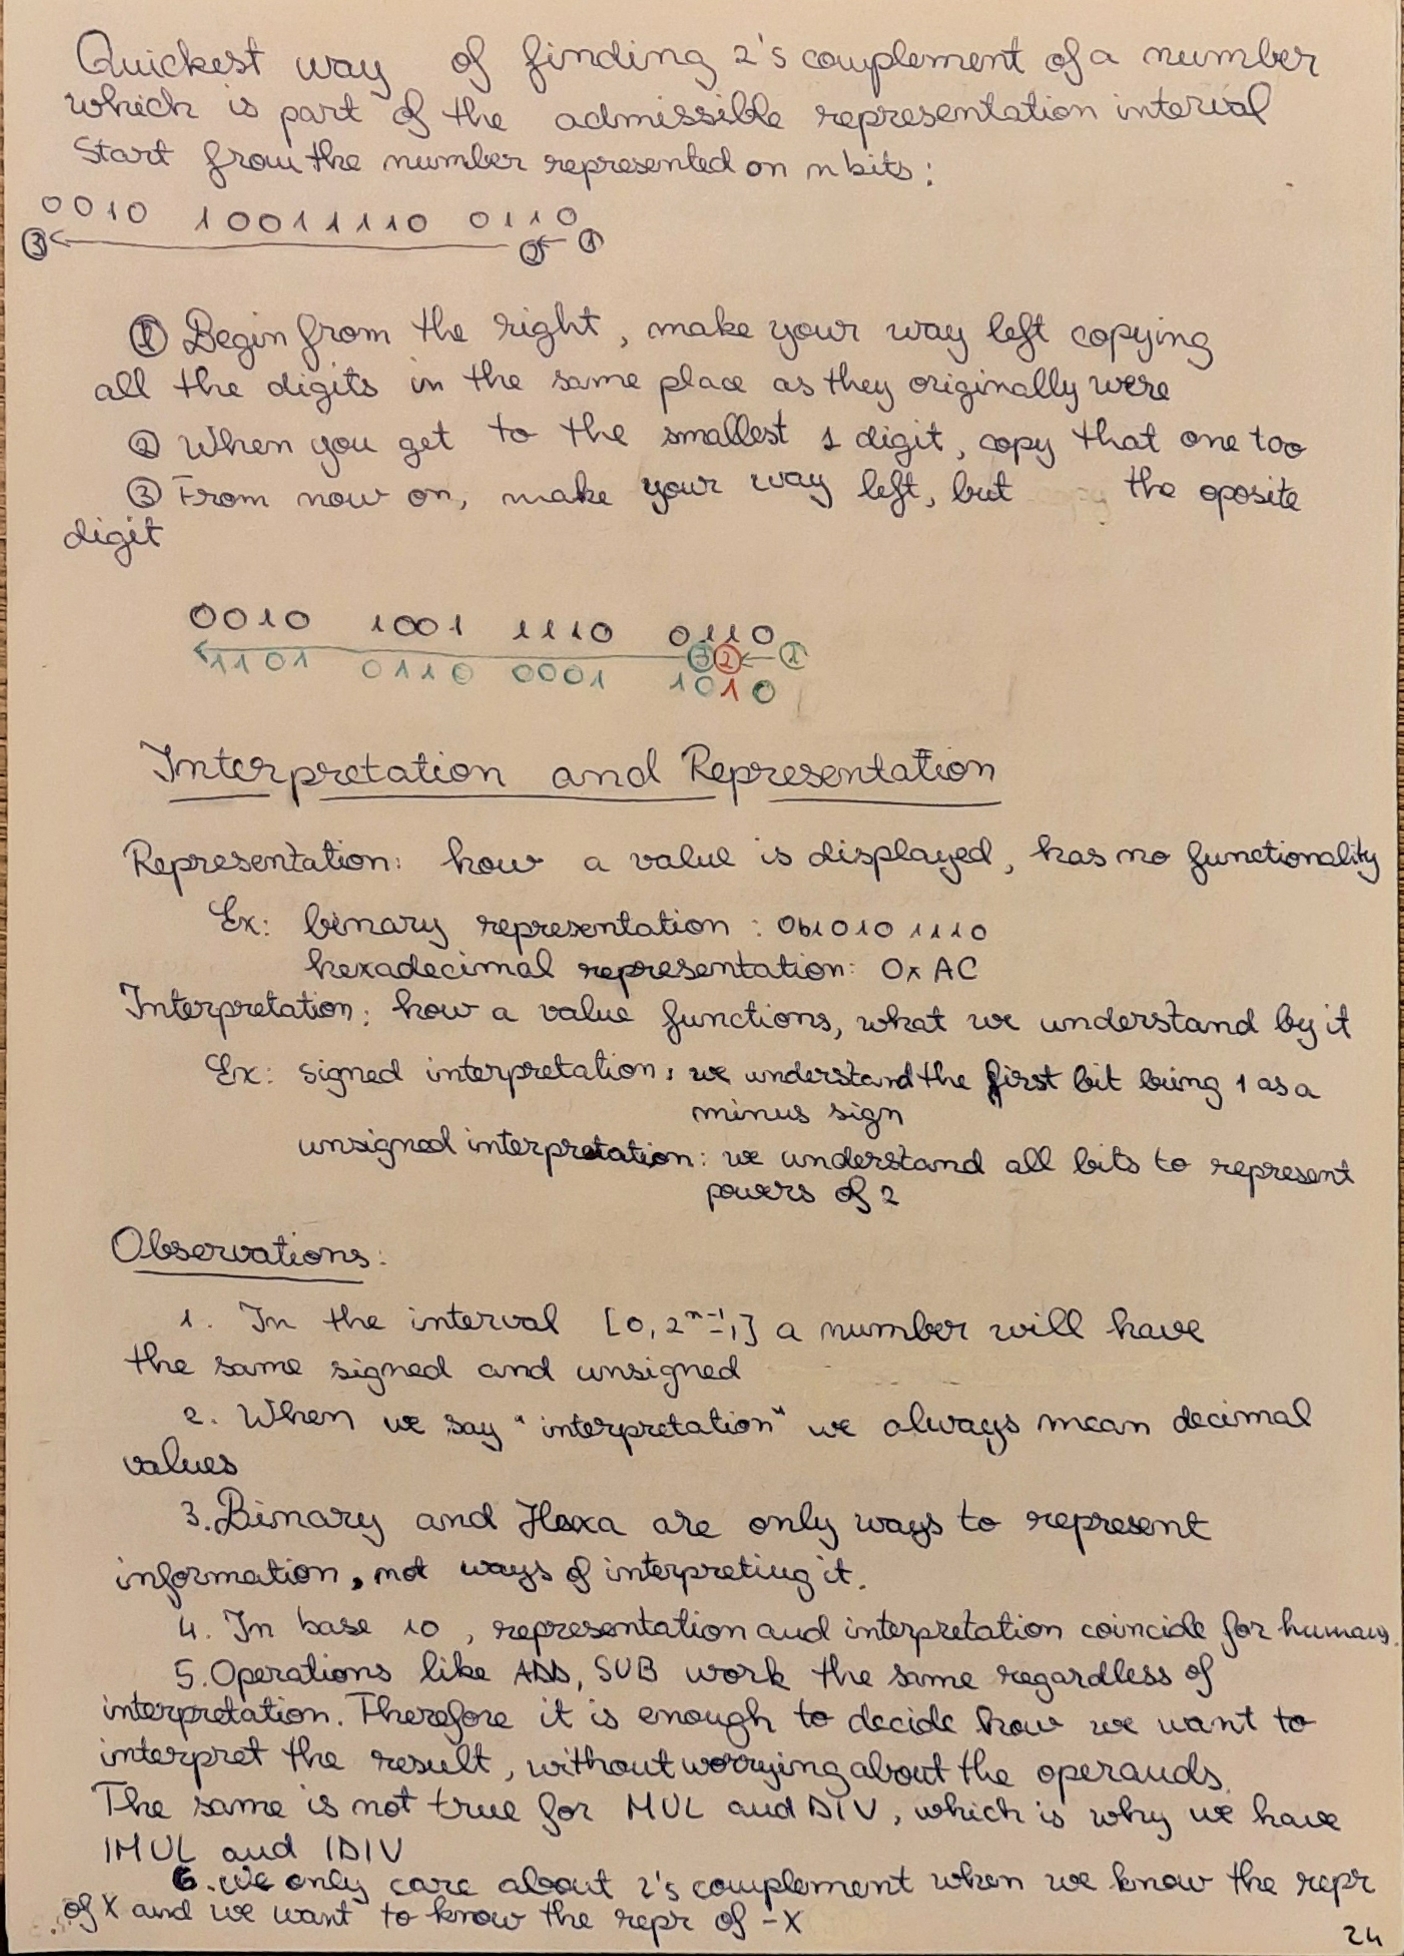 Quickest way of finding 2's complement of a number
which is part of the admissible representation interval
Start from the number represented on n bits:
0010 10011110 0110
③ ← ② ← ①
① Begin from the right, make your way left copying
all the digits in the same place as they originally were
② When you get to the smallest 1 digit, copy that one too
③ From now on, make your way left, but the oposite
digit
0010 1001 1110 0110
③ ② ← ①
1101 0110 0001 1010
Interpretation and Representation
Representation: how a value is displayed, has no functionality
Ex: binary representation: 0b1010 1110
hexadecimal representation: 0x AC
Interpretation: how a value functions, what we understand by it
Ex: signed interpretation: we understand the first bit being 1 as a
minus sign
unsigned interpretation: we understand all bits to represent
powers of 2
Observations:
1. In the interval [0, 2ⁿ⁻¹-1] a number will have
the same signed and unsigned
2. When we say "interpretation" we always mean decimal
values
3. Binary and Hexa are only ways to represent
information, not ways of interpreting it.
4. In base 10, representation and interpretation coincide for humans.
5. Operations like ADD, SUB work the same regardless of
interpretation. Therefore it is enough to decide how we want to
interpret the result, without worrying about the operands.
The same is not true for MUL and DIV, which is why we have
IMUL and IDIV
6. We only care about 2's complement when we know the repr
of X and we want to know the repr of -X
24